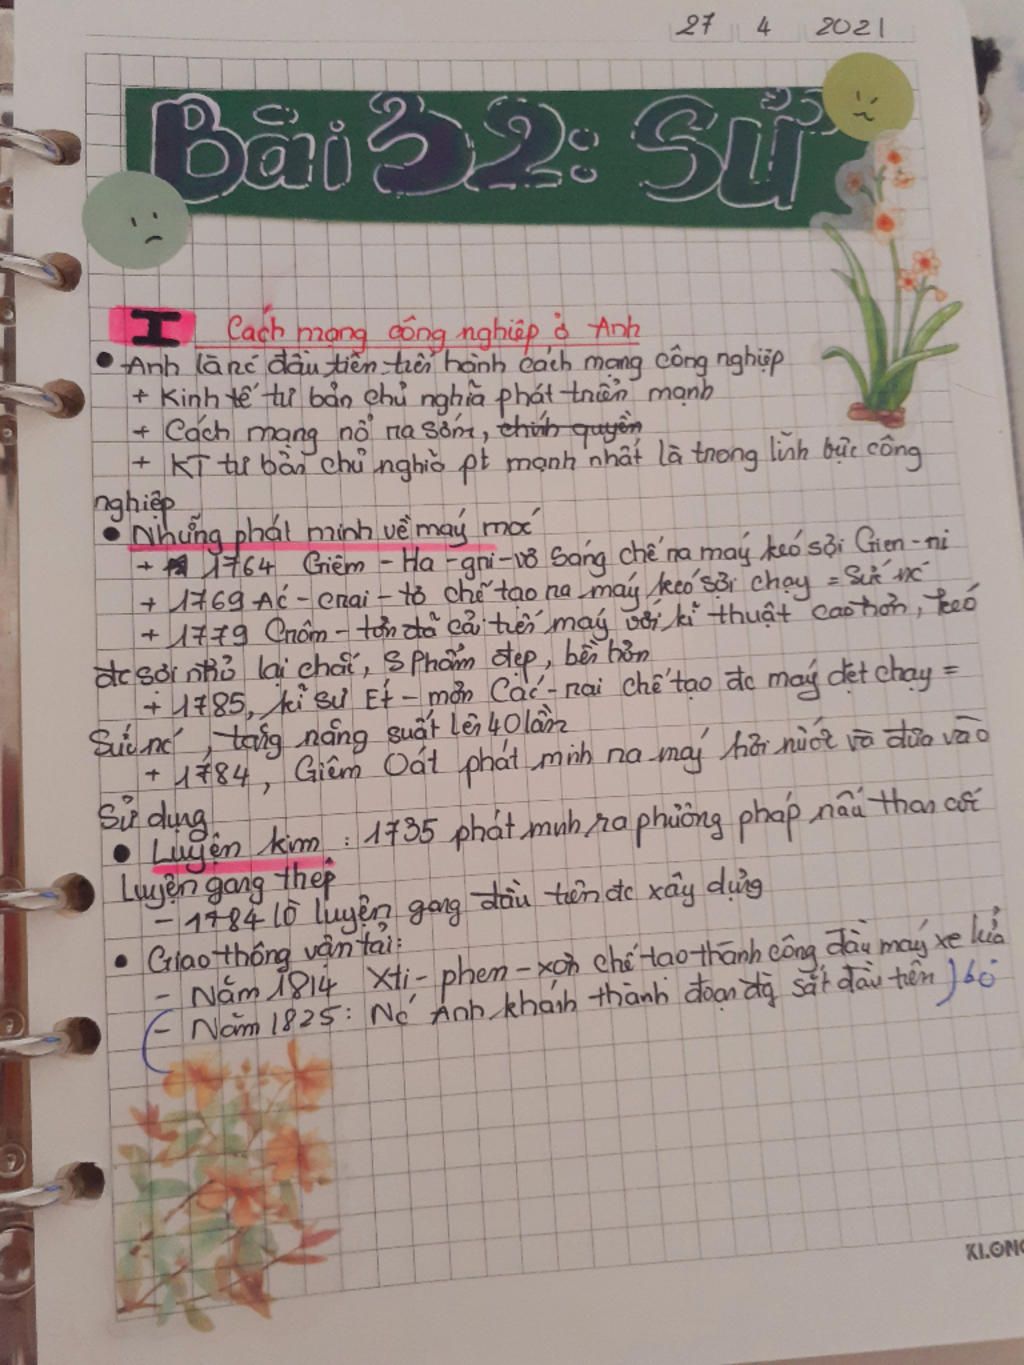 27 4 2021
Bài 32: Sử
I Cách mạng công nghiệp ở Anh
• Anh là nc đầu tiên tiến hành cách mạng công nghiệp
+ Kinh tế tư bản chủ nghĩa phát triển mạnh
+ Cách mạng nổ ra sớm, chính quyền
+ KT tư bản chủ nghĩa pt mạnh nhất là trong lĩnh vực công
nghiệp
• Những phát minh về máy móc
+ 1764 Giêm-Ha-gri-vơ sáng chế ra máy kéo sợi Gien-ni
+ 1769 Ác-crai-tơ chế tạo ra máy kéo sợi chạy = sức nc
+ 1779 Crôm-tơn đã cải tiến máy với kĩ thuật cao hơn, kéo
đc sợi nhỏ lại chắc, s phẩm đẹp, bền hơn
+ 1785, kĩ sư Ét-mơn Các-rai chế tạo đc máy dệt chạy =
sức nc, tăng năng suất lên 40 lần
+ 1784, Giêm Oát phát minh ra máy hơi nước và đưa vào
sử dụng
• Luyện kim: 1735 phát minh ra phương pháp nấu than cốc
luyện gang thép
- 1784 lò luyện gang đầu tiên đc xây dựng
• Giao thông vận tải:
- Năm 1814 Xti-phen-xơn chế tạo thành công đầu máy xe lửa
(- Năm 1825: Nc Anh khánh thành đoạn đg sắt đầu tiên) bỏ
KLONG